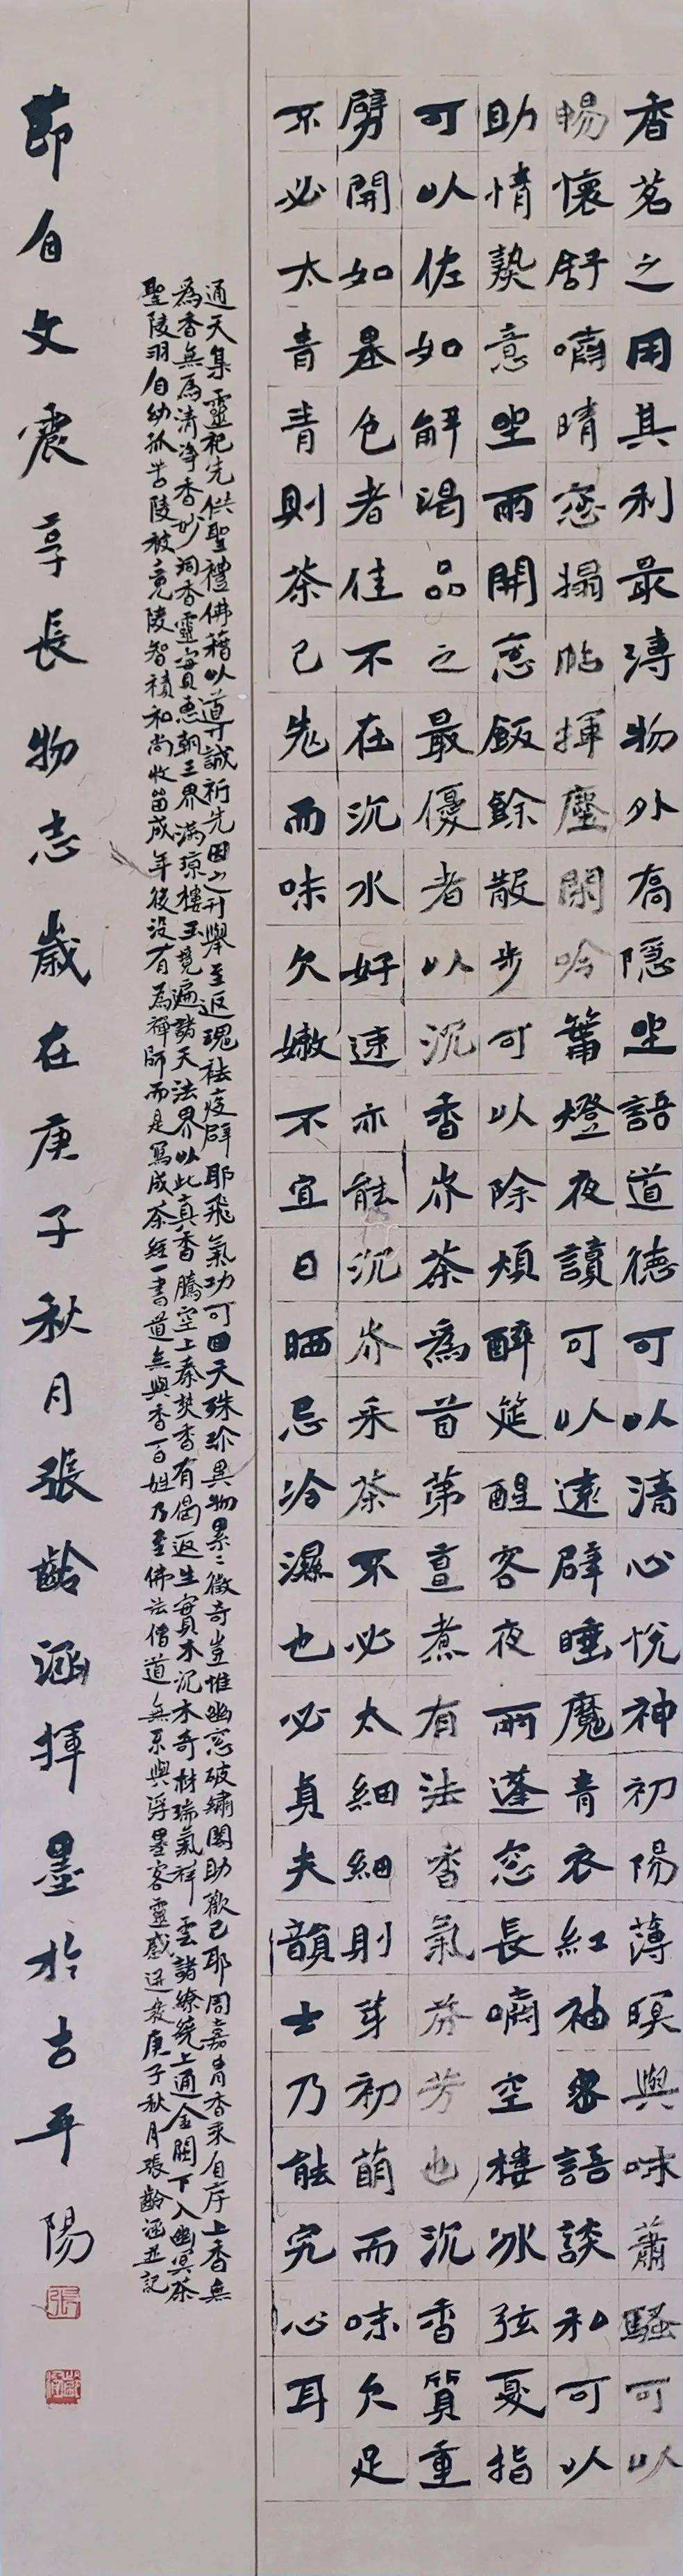 香茗之用其利最溥物外高隱坐語道德可以清心悅神初陽薄暝興味蕭騷可以
暢懷舒嘯晴窓搨帖揮麈閑吟篝燈夜讀可以遠辟睡魔青衣紅袖密語談私可以
助情熱意坐雨開窓飯餘散步可以除煩醉筵醒客夜雨蓬窓長嘯空樓冰弦戛指
可以佐如解渴品之最優者以沉香岕茶為首第亶煮有法香氣芬芳也沉香質重
劈開如墨色者佳不在沉水好速亦能沉岕采茶不必太細細則芽初萌而味欠足
不必太青青則茶已老而味欠嫩不宜日晒忌冷濕也必貞夫韻士乃能究心耳
通天集靈祀先供聖禮佛藉以導誠祈先因之升舉至返瑰祛疫辟耶飛氣功可回天殊珍異物累〻徵奇豈惟幽窓破繡閣助歡已耶周嘉胄香乘自序上香無
為香無為清淨香妙洞香靈寶惠朝三界滿瓊樓玉境遍諸天法界以此真香騰空上奏焚香有偈返生寶木沉木奇材瑞氣祥雲諸繚繞上通金闕下入幽冥茶
聖陸羽自幼孤苦陵被竟陵智積和尚收留成年後沒有為禪師而是寫成茶經一書道無與香百姓乃至佛法僧道無系與浮墨客靈感迸發庚子秋月張齡涵並記
節自文震亨長物志歲在庚子秋月張齡涵揮墨於古平陽